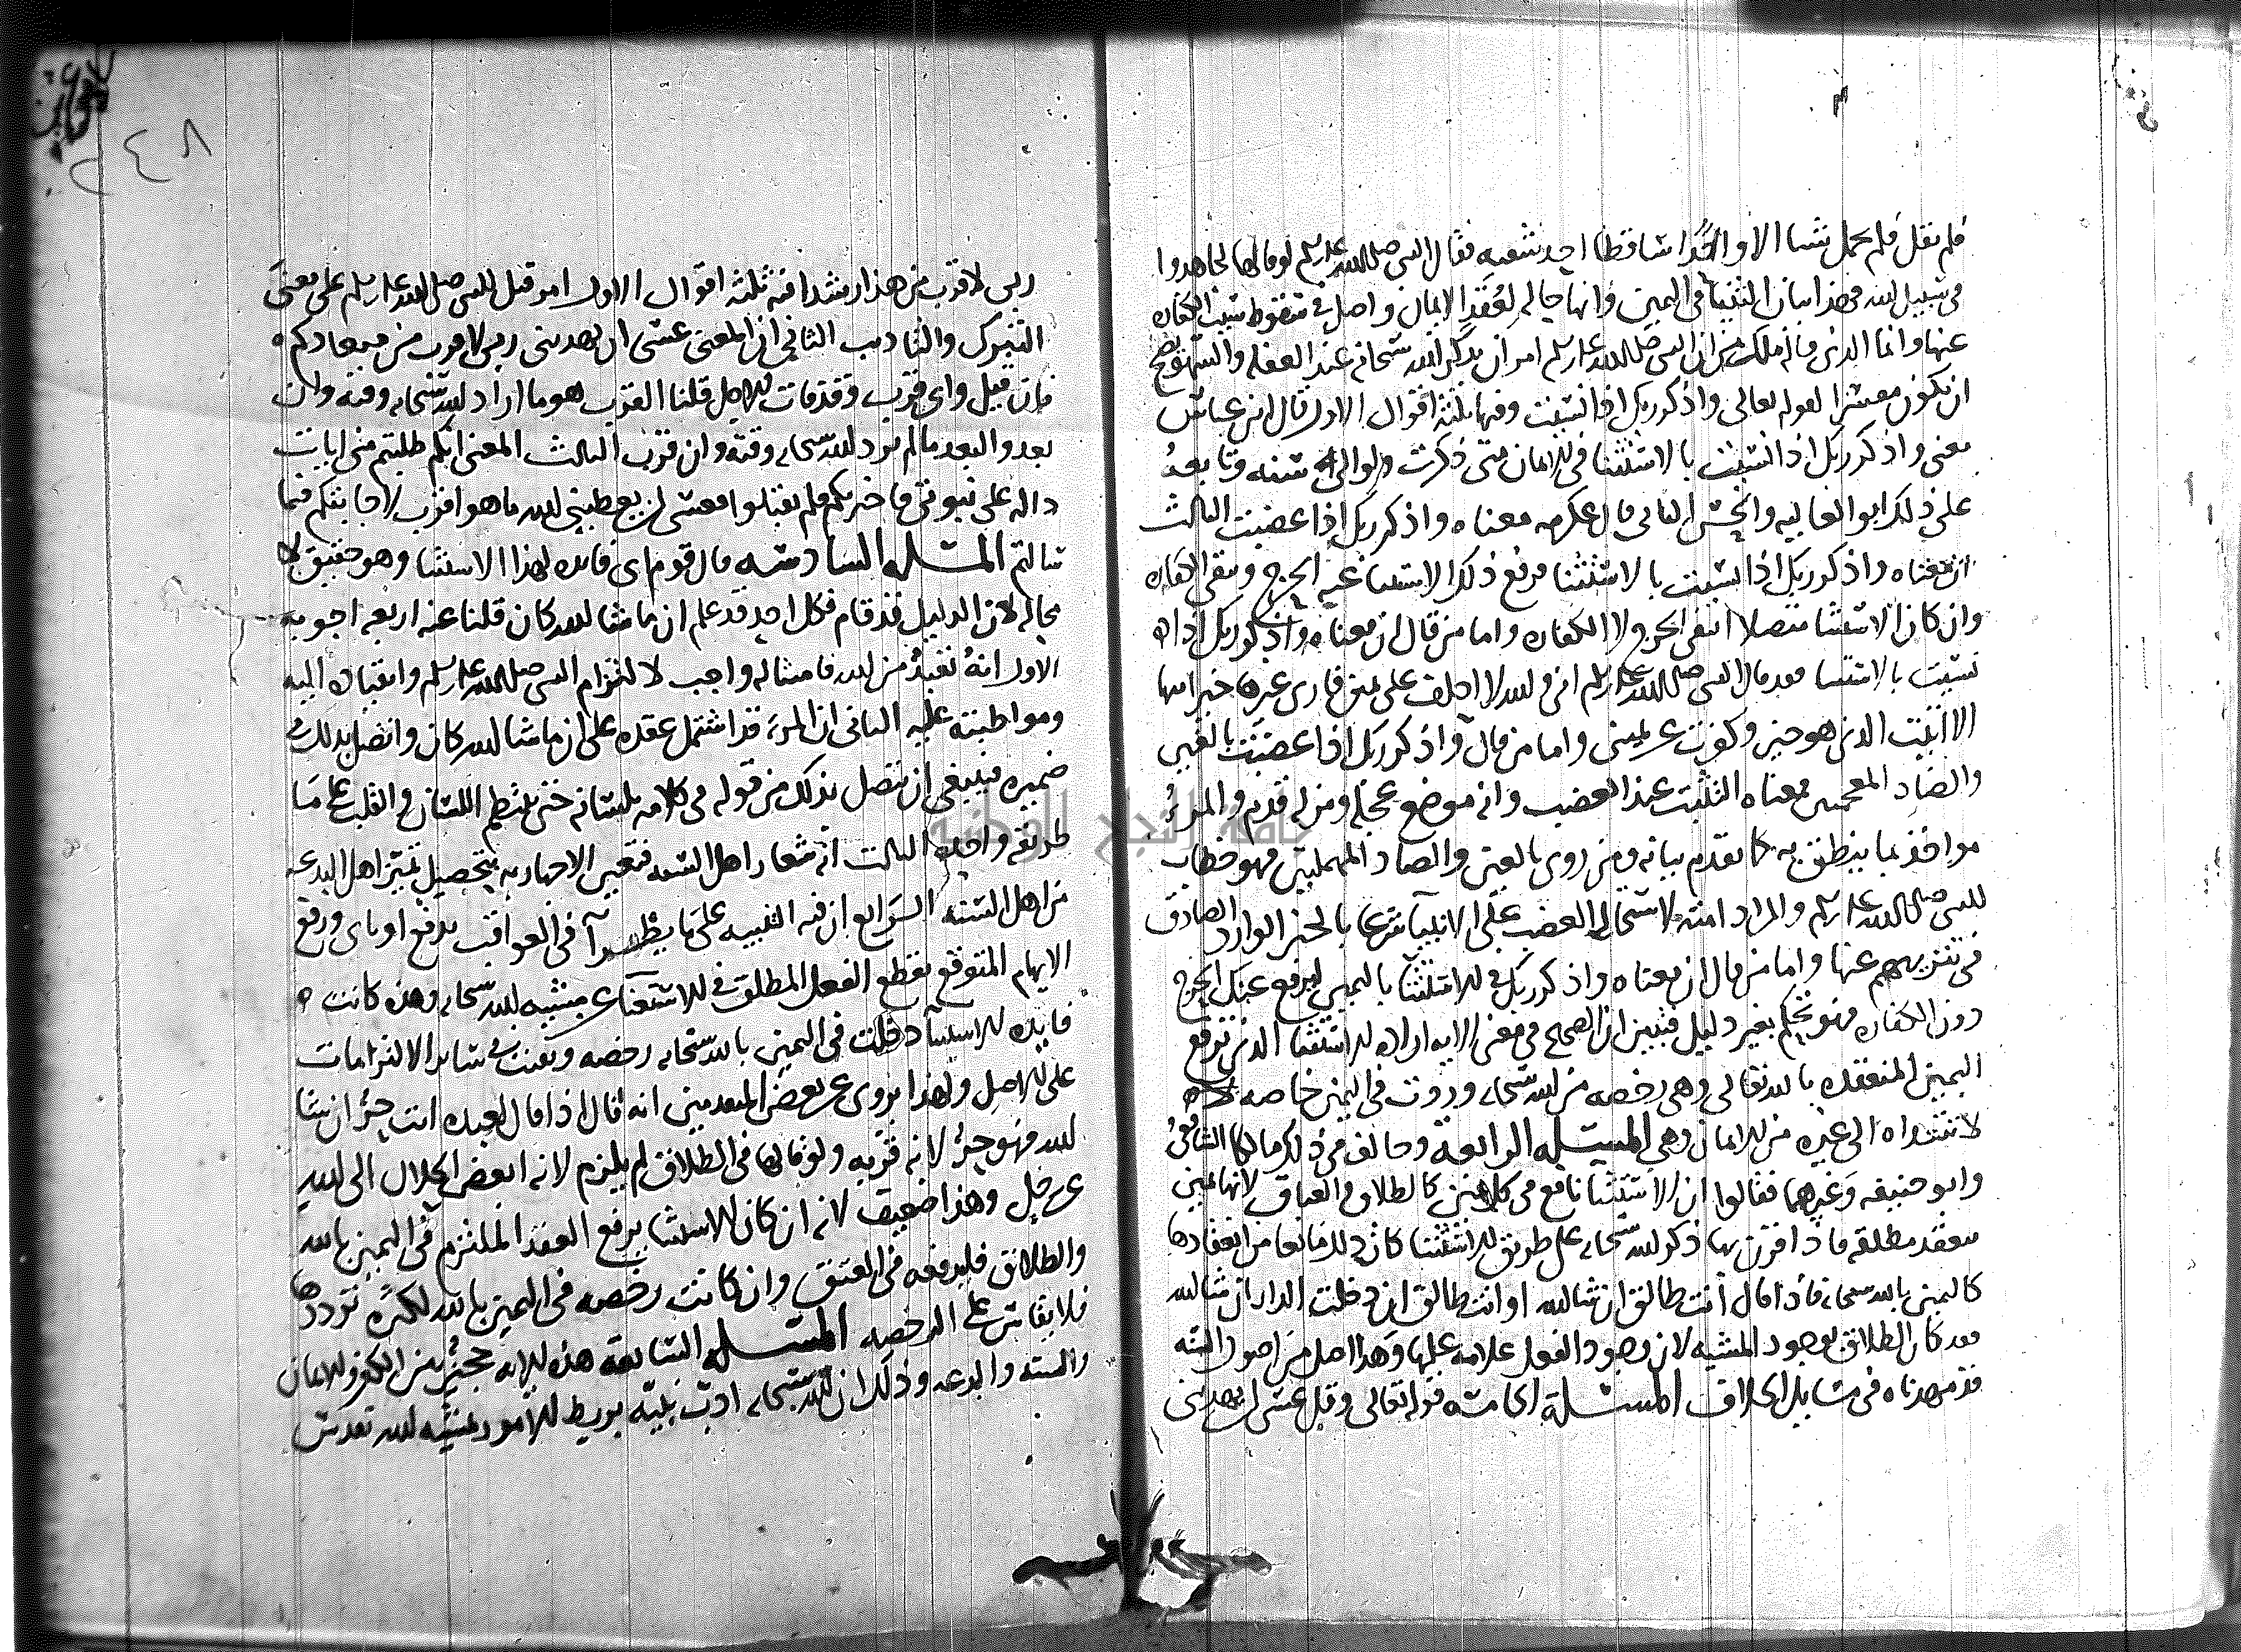 فلم يقل فلم تحمل نسا الا واحدا ساقطا احد شقيه فقال النبي صلى الله عليه وسلم لو قالها لجاهدوا
في سبيل الله فهذا بيان الثنيا في اليمين وانها حالة لعقد الايمان واصل في سقوط سبب الكفارة
عنها وانما الذي قاله ملك من ان النبي صلى الله عليه وسلم امر ان يذكر الله سبحانه عند الغفله والسهو يصح
ان يكون معتبرا لقوله تعالى واذكر ربك اذا نسيت وفيها ثلثة اقوال الاول قال ابن عباس
معنى واذكر ربك اذا نسيت بالاستثنا في الايمان متى ذكرت ولو الى سنه وتابعه
على ذلك ابو العاليه والحسن الثاني قال عكرمه معناه واذكر ربك اذا غضبت الثالث
ان معناه واذكر ربك اذا نسيت بالاستثنا فرفع ذلك الاستثنا عنه الحرج وتبقى الكفاره
وان كان الاستثنا متصلا انتفى الحرج والكفاره واما من قال ان معناه واذكر ربك اذا
نسيت بالاستثنا فقد قال النبي صلى الله عليه وسلم اني والله لا احلف على يمين فارى غيرها خيرا منها
الا اتيت الذي هو خير وكفرت عن يميني واما من قال واذكر ربك اذا غضبت بالغين
والضاد المعجمتين معناه التثبت عند الغضب وانه موضع عجله ومزلة قدم والمرء
مواخذ بما ينطق به كما تقدم بيانه ومن روى بالعين والصاد المهملتين فهو خطاب
للنبي صلى الله عليه وسلم والمراد امته لاستحالة العصب على الانبيا شرعا بالخبر الوارد الصادق
في تنزيههم عنها واما من قال ان معناه واذكر ربك في الاستثنا باليمين ليرفع عنك الحرج
دون الكفاره فهو تحكم بغير دليل فتبين ان الصحيح في معنى الايه اراده الاستثنا الذي يرفع
اليمين المنعقده بالله تعالى وهي رخصه من الله سبحانه وردت في اليمين خاصه
لا تتعداه الى غيره من الايمان وهي المسئله الرابعة وخالف في ذلك مالكا الشافعي
وابو حنيفه وغيرهما فقالوا ان الاستثنا نافع في كل يمين كالطلاق والعتاق لانها يمين
تنعقد مطلقه فاذا قرن بها ذكر الله سبحانه على طريق الاستثنا كان ذلك مانعا من انعقادها
كاليمين بالله سبحانه فاذا قال انت طالق ان شا الله او انت طالق ان دخلت الدار ان شا الله
فقد كان الطلاق بوجود المشيه لان وجود الفعل علامه عليها وهذا اصل من اصول السنه
قد مهدناه في مسايل الخلاف المسئلة الخامسه قوله تعالى وقل عسى ان يهديني
ربي لاقرب من هذا رشدا فيه ثلثة اقوال الاول امر قيل للنبي صلى الله عليه وسلم على معنى
التبرك والتاديب الثاني ان المعنى عسى ان يهديني ربي لاقرب من ميعادكم
فان قيل واي قرب وقد فات الاجل قلنا القرب هو ما اراد الله سبحانه وقته وان
بعد والبعد ما لم يرد الله سبحانه وقته وان قرب الثالث المعنى انكم طلبتم مني ايات
داله على نبوتي فاخبرتكم فلم تقبلوا فعسى ان يعطيني الله ما هو اقرب لاجابتكم فيما
سالتم المسئله السادسه قال قوم اي فايده لهذا الاستثنا وهو حقيق لا
محاله لان الدليل قد قام فكل احد قد علم ان ما شا الله كان قلنا عنه اربعه اجوبه
الاول انه تعبد من الله فامتثاله واجب لالتزام النبي صلى الله عليه وسلم وانقياده اليه
ومواظبته عليه الثاني ان المرء قد اشتمل عقده على ان ما شا الله كان واتصل بذلك في
ضميره فينبغي ان يتصل بذلك من قوله في كلامه بلسانه حتى ينتظم اللسان والقلب على
طريقه واحده الثالث انه شعار اهل السنه فتعين الاجهار به بتحصيل تميز اهل البدعه
من اهل السنه الرابع ان فيه التنبيه على ما يطرا في العواقب بدفع او باي ورفع
الايهام المتوقع بقطع الفعل المطلق في الاستغنا عن مشيه الله سبحانه وهذه كانت
فايده الاستثنا دخلت في اليمين بالله سبحانه رخصه وبقيت في ساير الالتزامات
على الاصل ولهذا يروى عن بعض المتقدمين انه قال اذا قال لعبده انت حر ان شا
الله فهو حر لانه قربه ولو قالها في الطلاق لم يلزم لانه ابغض الحلال الى الله
عز وجل وهذا ضعيف لانه ان كان الاستثنا يرفع العقد الملتزم في اليمين بالله
والطلاق فليرفعه في العتق وان كانت رخصه في اليمين بالله لكثرة ترددها
فلا يقاس على الرخصه المسئله السابعه هذه الايه حجيز بين الكفر والايمان
والسنه والبدعه وذلك ان الله سبحانه ادب نبيه بربط الامور بمشيه الله تقدس